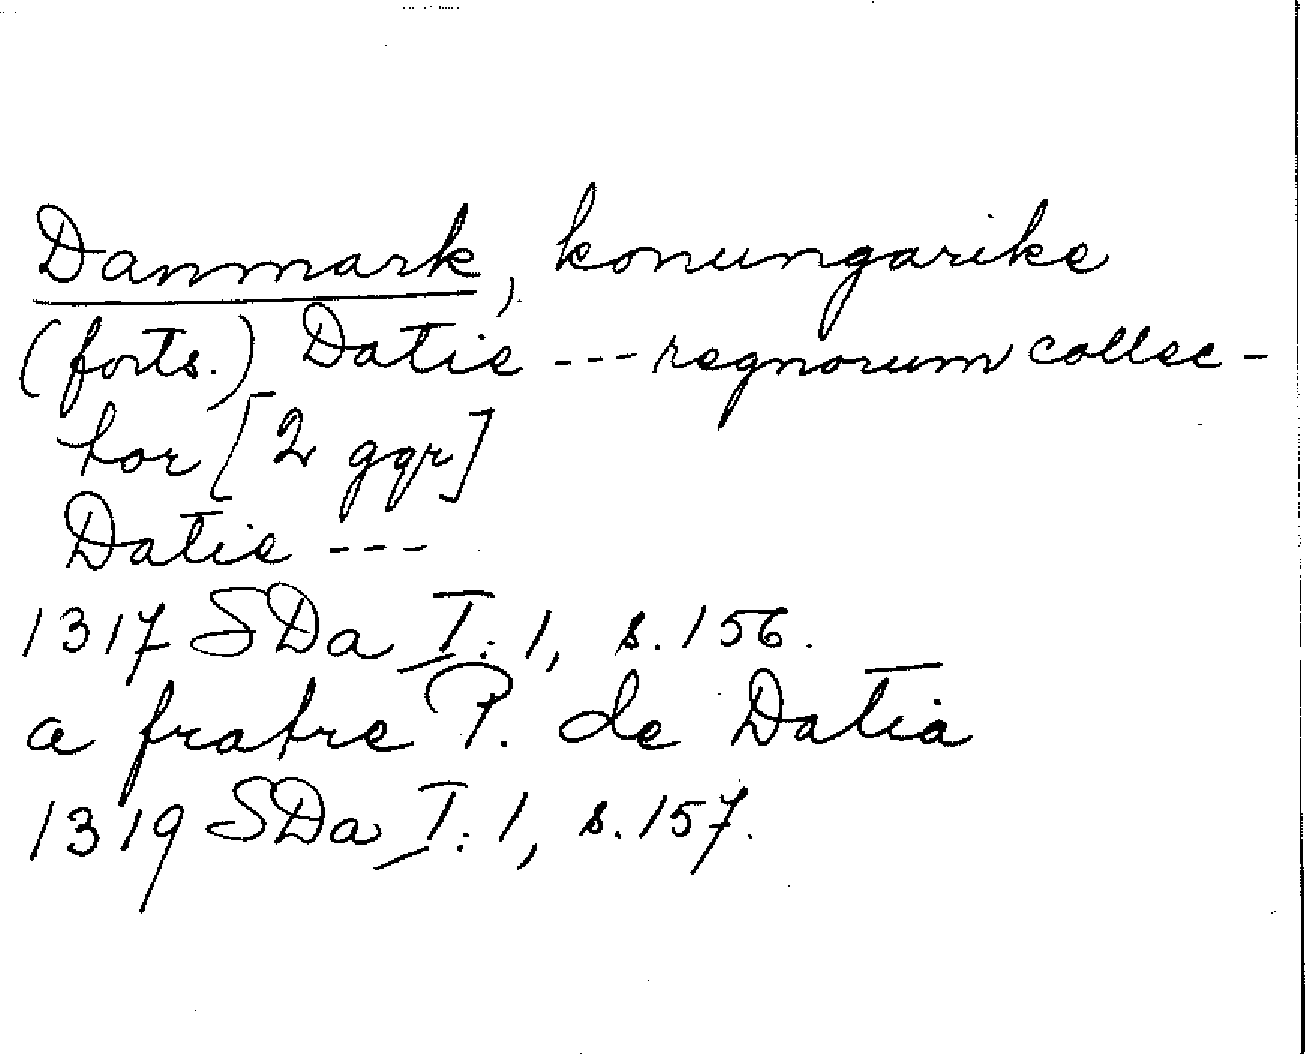 Danmark, konungarike
(forts.) Datie --- regnorum collec-
tor [2 ggr]
Datie ---
1317 SDa I:1, s.156.
a fratre P. de Datia
1319 SDa I:1, s.157.